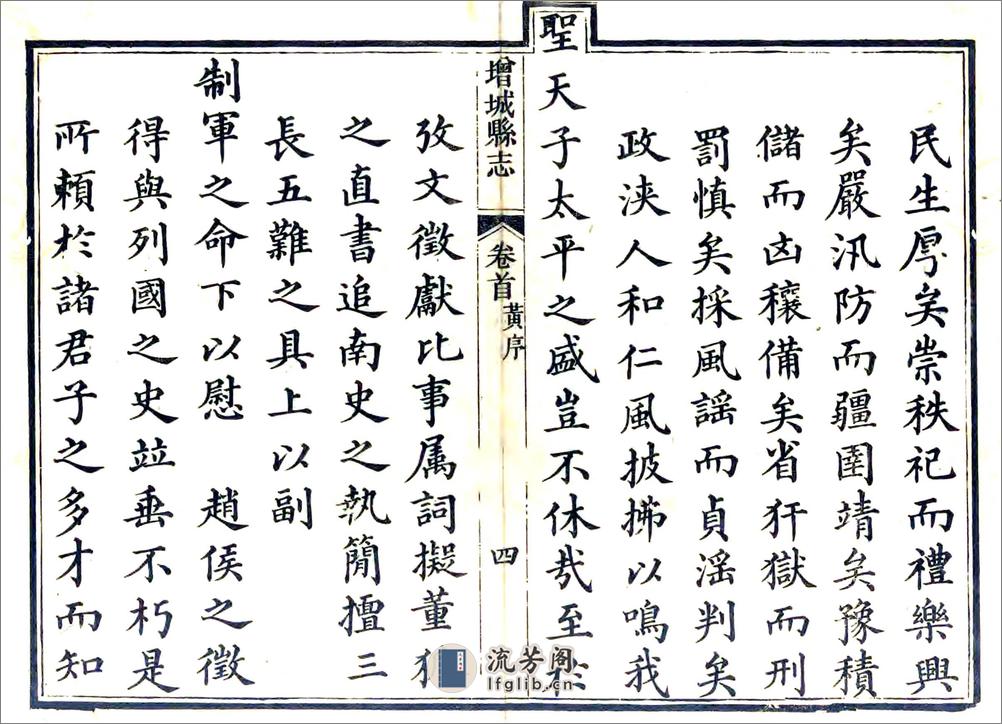 民生厚矣崇秩祀而禮樂興
矣嚴汛防而疆圉靖矣豫積
儲而凶穰備矣省犴獄而刑
罰慎矣採風謡而貞滛判矣
政浹人和仁風披拂以鳴我
聖天子太平之盛豈不休哉至於
增城縣志 卷首 黃序 四
攷文徵獻比事属詞擬董狐
之直書追南史之執簡擅三
長五難之具上以副
制軍之命下以慰 趙侯之徵
得與列國之史竝垂不朽是
所頼於諸君子之多才而知
流芳阁
lfglib.cn